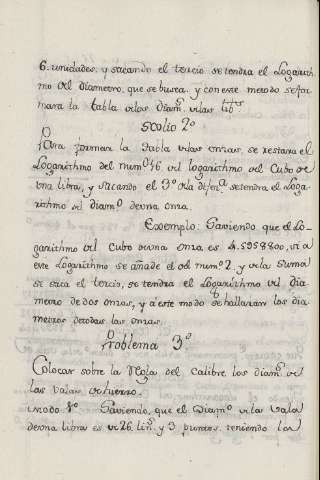 6. unidades, y sacando el tercio se tendra el Logarith
mo del diametro, que se busca. y con este metodo se for
mara la tabla de los diam.s de las lib.s
Scolio 2º
Para formar la tabla de las onzas, se restara el
Logarithmo del num.º 16. del logarithmo del Cubo de
una libra, y sacando el 3º de la difer.a se tendra el Loga
rithmo del diam.º de una onza.
Exemplo: Saviendo que el Lo-
garithmo del Cubo de una onza es 4.5958800, si a
este Logarithmo se añade el del num.º 2, y de la suma
se saca el tercio, se tendra el Logarithmo del dia
metro de dos onzas, y a este modo se hallaran los dia
metros de todas las onzas.
Problema 3º
Colocar sobre la Regla del Calibre los diam.s de
las valas de hierro.
Modo 1º Saviendo, que el Diam.º de la vala
de una libra es de 26. lin.s y 3 puntos. teniendo los